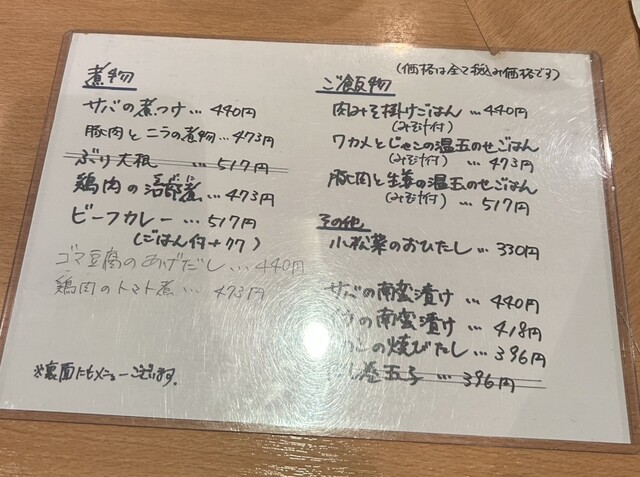 (価格は全て税込み価格です)
煮物
サバの煮つけ…440円
豚肉とニラの煮物…473円
ぶり大根 …517円
鶏肉の治部煮…473円
ビーフカレー…517円
(ごはん付+77)
ゴマ豆腐のあげだし…440円
鶏肉のトマト煮…473円
※裏面にもメニューございます。
ご飯物
肉みそ掛けごはん…440円
(みそ汁付)
ワカメとじゃこの温玉のせごはん
(みそ汁付) …473円
豚肉と生姜の温玉のせごはん
(みそ汁付) …517円
その他
小松菜のおひたし…330円
サバの南蛮漬け…440円
の南蛮漬け…418円
の焼びたし…396円
し巻玉子…396円